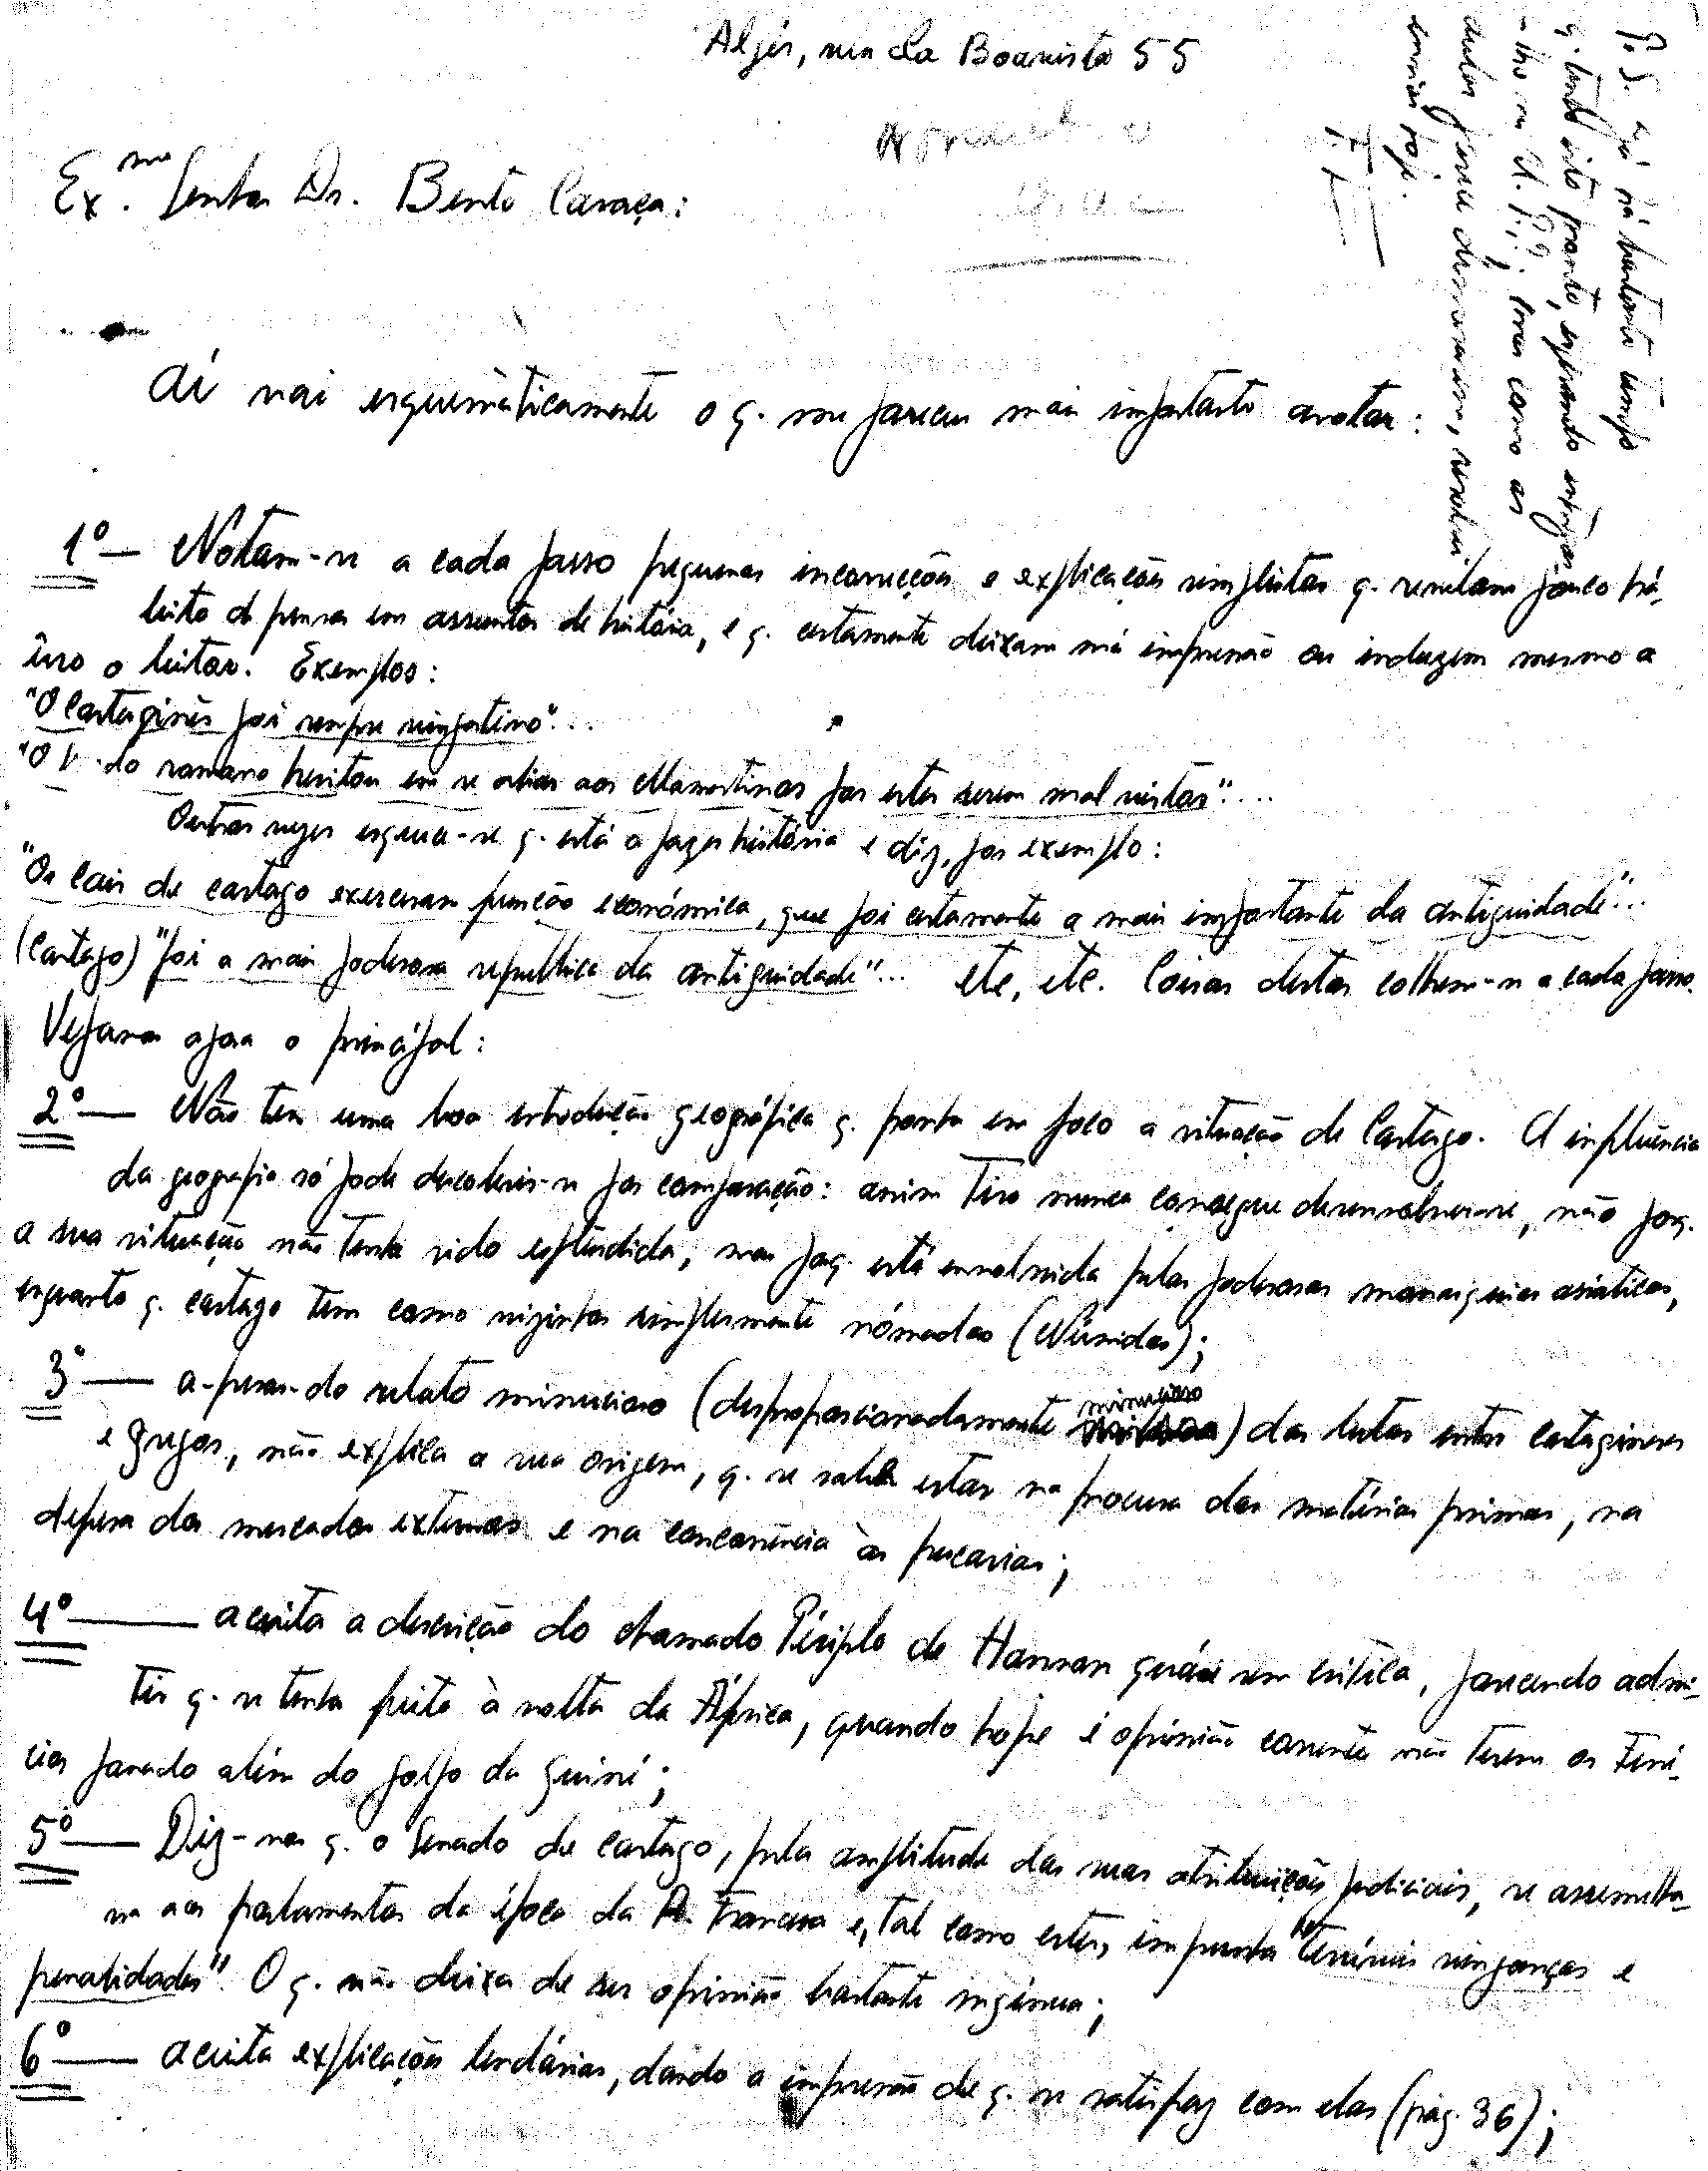 Algés, rua da Boavista 55
Ex.mo Senhor Dr. Bento Caraça:
Aí vai esquemàticamente o q. me pareceu mais importante anotar:
1º — Notam-se a cada passo pequenas incorrecções e explicações simplistas q. revelam pouco há-
bito de pensar em assuntos de história, e q. certamente deixam má impressão ou induzem mesmo a
êrro o leitor. Exemplos:
"O Cartaginês foi sempre vingativo"...
"O do romano hesitou em se aliar aos Mamertinos por estes serem mal vistos"...
Outras vezes esquece-se q. está a fazer história e diz, por exemplo:
"Os cais de cartago exerceram função económica, que foi certamente a mais importante da antiguidade"...
(Cartago) "foi a mais poderosa república da antiguidade"... etc, etc. Coisas destas colhem-se a cada passo.
Vejamos agora o principal:
2º — Não tem uma boa introdução geográfica q. ponha em foco a situação de Cartago. A influência
da geografia só pode descobrir-se por comparação: assim Tiro nunca consegue desenvolver-se, não porq.
a sua situação não tenha sido esplêndida, mas porq. está envolvida pelas poderosas monarquias asiáticas,
enquanto q. cartago tem como vizinhos simplesmente nómadas (Númidas);
3º — a-pesar-do relato minucioso (desproporcionadamente minucioso) das lutas entre cartagineses
e gregos, não explica a sua origem, q. se sabe estar na procura das matérias primas, na
defesa dos mercados externos e na concorrência às pescarias;
4º — aceita a descrição do chamado Périplo de Hannon quási sem crítica, parecendo admi-
tir q. se tenha feito à volta da África, quando hoje é opinião corrente não terem os Fení-
cios passado além do golfo da Guiné;
5º — Diz-nos q. o Senado de cartago, pela amplitude das suas atribuições judiciais, se assemelha-
va aos parlamentos da época da R. Francesa e, tal como estes, impunha "terríveis vinganças e
penalidades". O q. não deixa de ser opinião bastante ingénua;
6º — aceita explicações lendárias, dando a impressão de q. se satisfaz com elas (pág. 36);
P. S. há bastante tempo
q. tenho isto pronto, esperando entregar-
-lho na U. P.; mas como as
aulas demorarem, resolvi
enviar hoje.